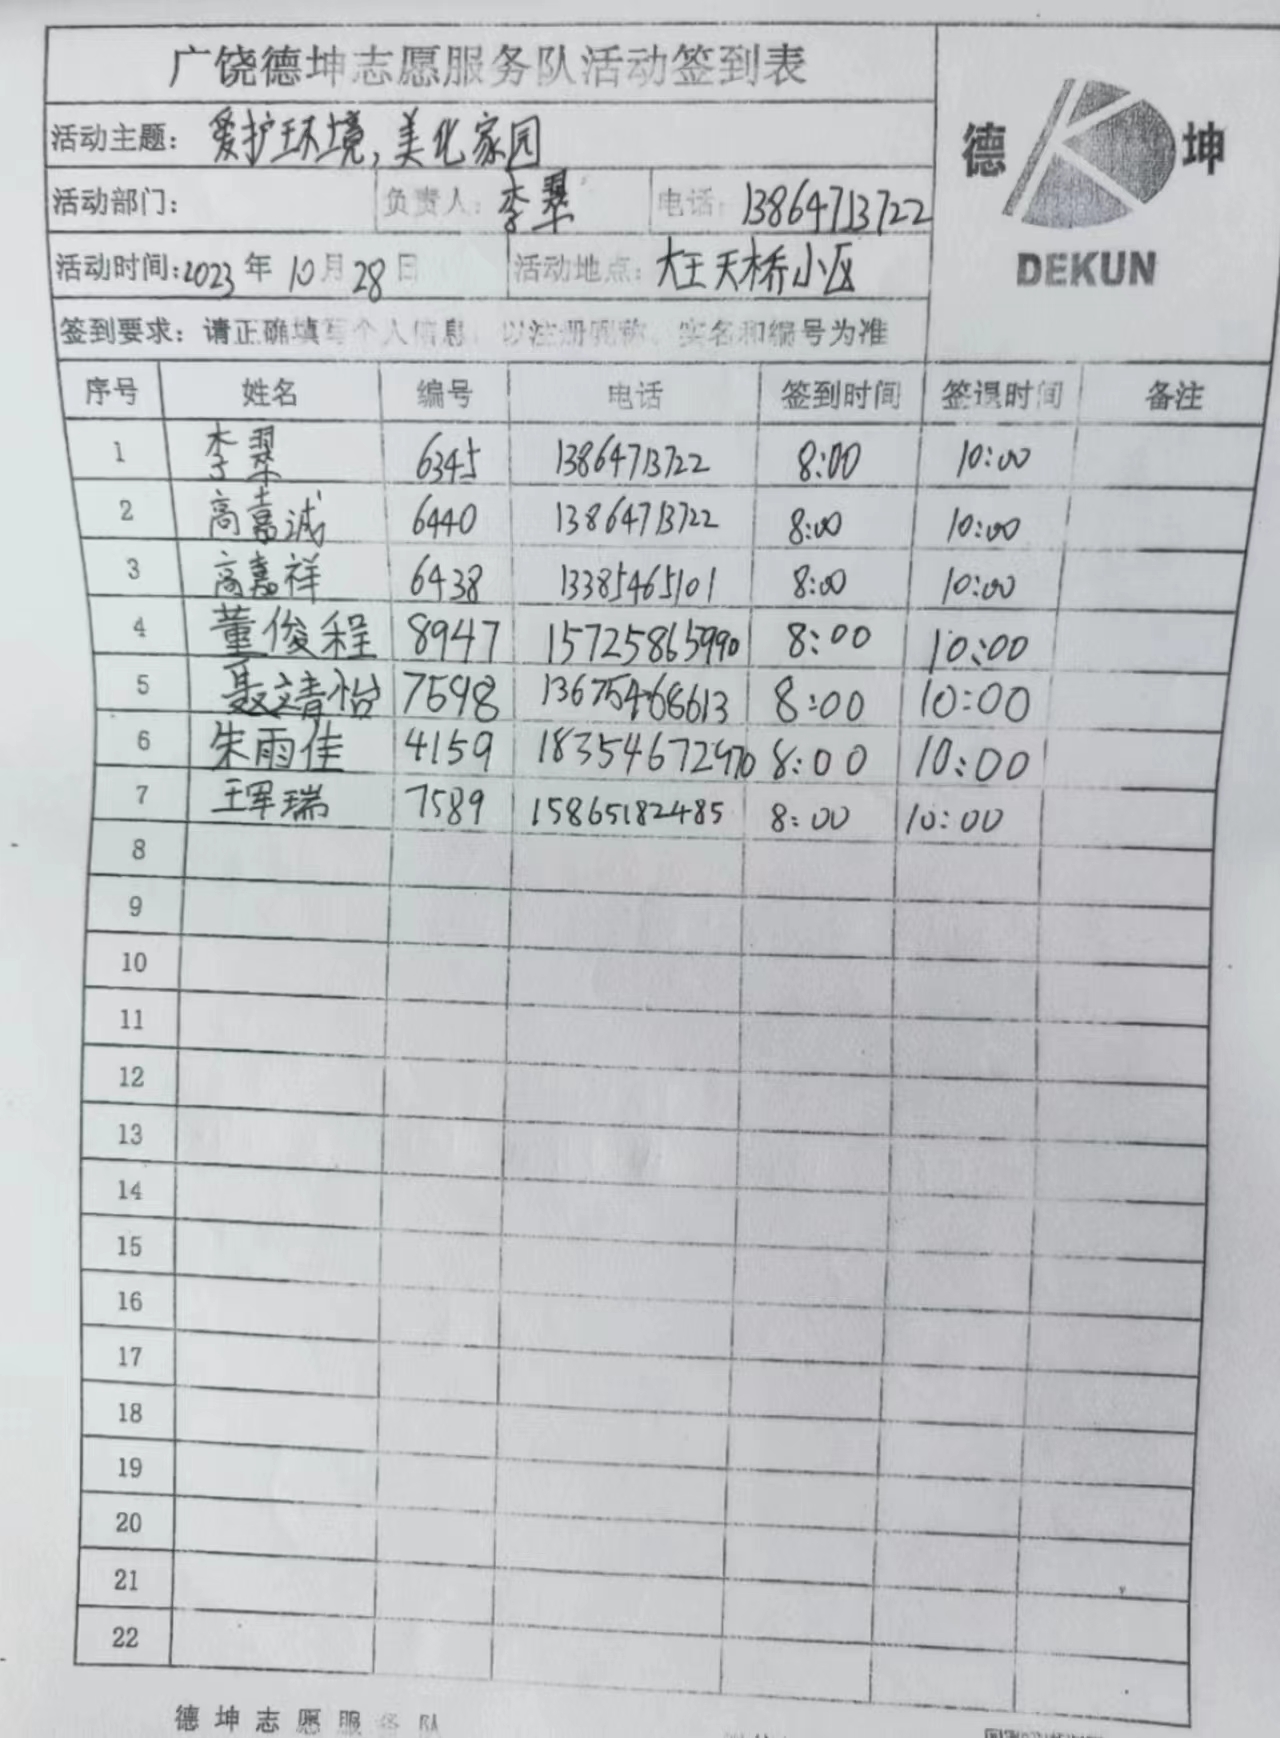 广饶德坤志愿服务队活动签到表
德坤
DEKUN
活动主题：爱护环境，美化家园
活动部门： 负责人：李翠 电话：13864713722
活动时间：2023年10月28日 活动地点：大王天桥小区
签到要求：请正确填写个人信息，以注册昵称、实名和编号为准
序号 姓名 编号 电话 签到时间 签退时间 备注
1 李翠 6345 13864713722 8:00 10:00
2 高嘉诚 6440 13864713722 8:00 10:00
3 高嘉祥 6438 13385465101 8:00 10:00
4 董俊程 8947 15725865990 8:00 10:00
5 聂靖怡 7598 13675468613 8:00 10:00
6 朱雨佳 4159 18354672970 8:00 10:00
7 王军瑞 7589 15865182485 8:00 10:00
8
9
10
11
12
13
14
15
16
17
18
19
20
21
22
德坤志愿服务队